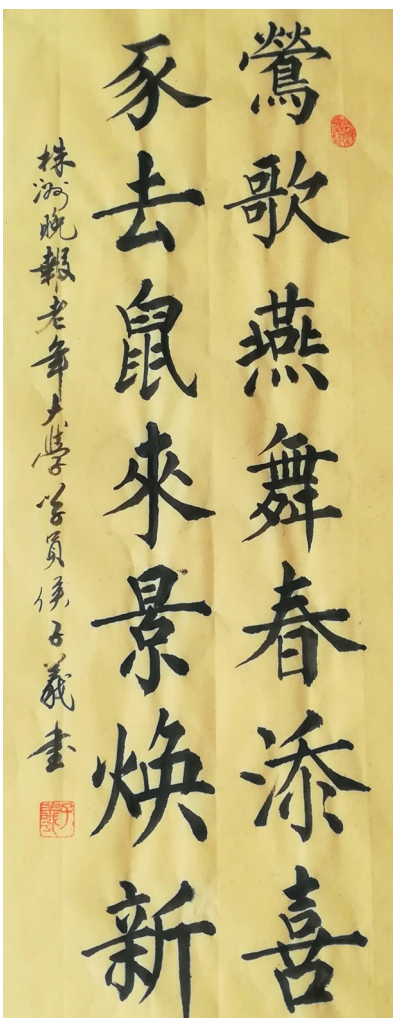 鶯歌燕舞春添喜
豕去鼠來景焕新
株洲晚報老年大學学員侯子義书